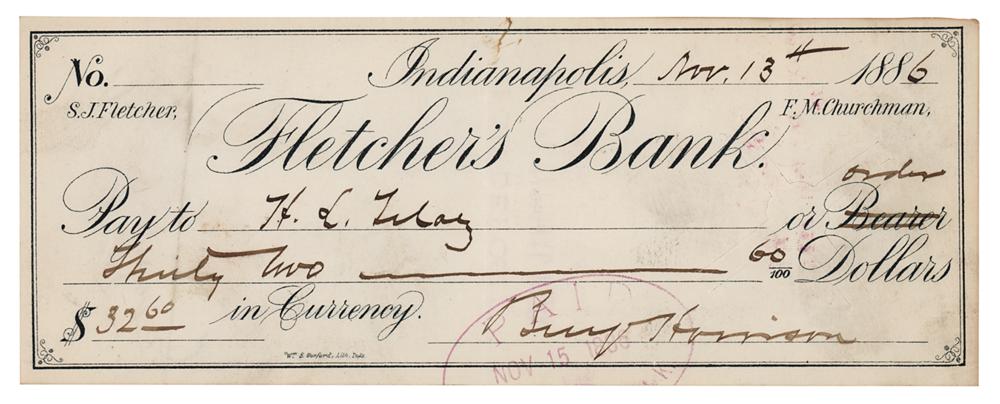 No. Indianapolis, Nov. 13th 1886
S.J. Fletcher, F.M. Churchman,
Fletcher's Bank.
order
Pay to H. L. or Bearer
Thirty Two 60/100 Dollars
$ 32 60 in Currency.
Benj Harrison
PAID
NOV 15 1886